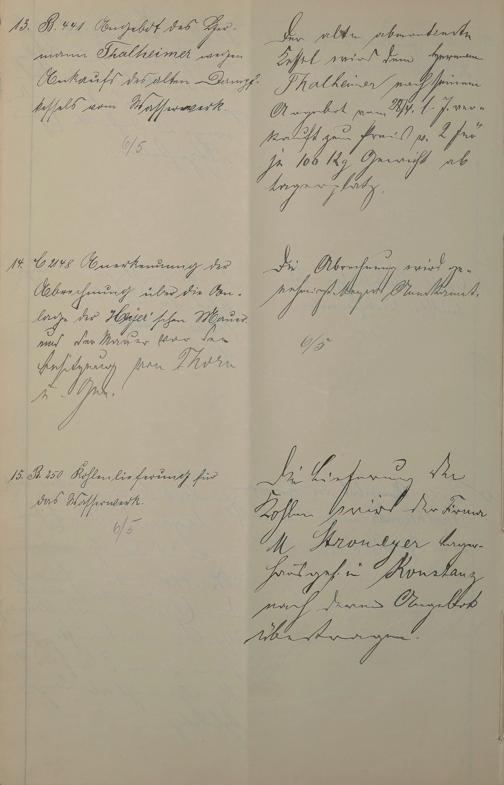 13. B. 441 Angebot des Her-
mann Thalheimer wegen
Ankaufs des alten Dampf-
kessels vom Wasserwerk.
6/5
Der alte
Kessel wird dem Hermann
Thalheimer nach seinem
Angebot vom l. J. ver-
kauft zum Preis v. 2 für
je 100 Kg Gewicht ab
Lagerplatz.
14. C 2148 Anerkennung der
Abrechnung über die An-
lage der schen Mauer
und der Mauer vor der
Besitzung von Thorn
u. Gen.
Die Abrechnung wird ge-
nehmigt.
6/5
15. B. 250 Kohlenlieferung für
das Wasserwerk.
6/5
Die Lieferung der
Kohlen wird der Firma
M Stromeyer Lager-
hausges. in Konstanz
nach deren Angebot
übertragen.